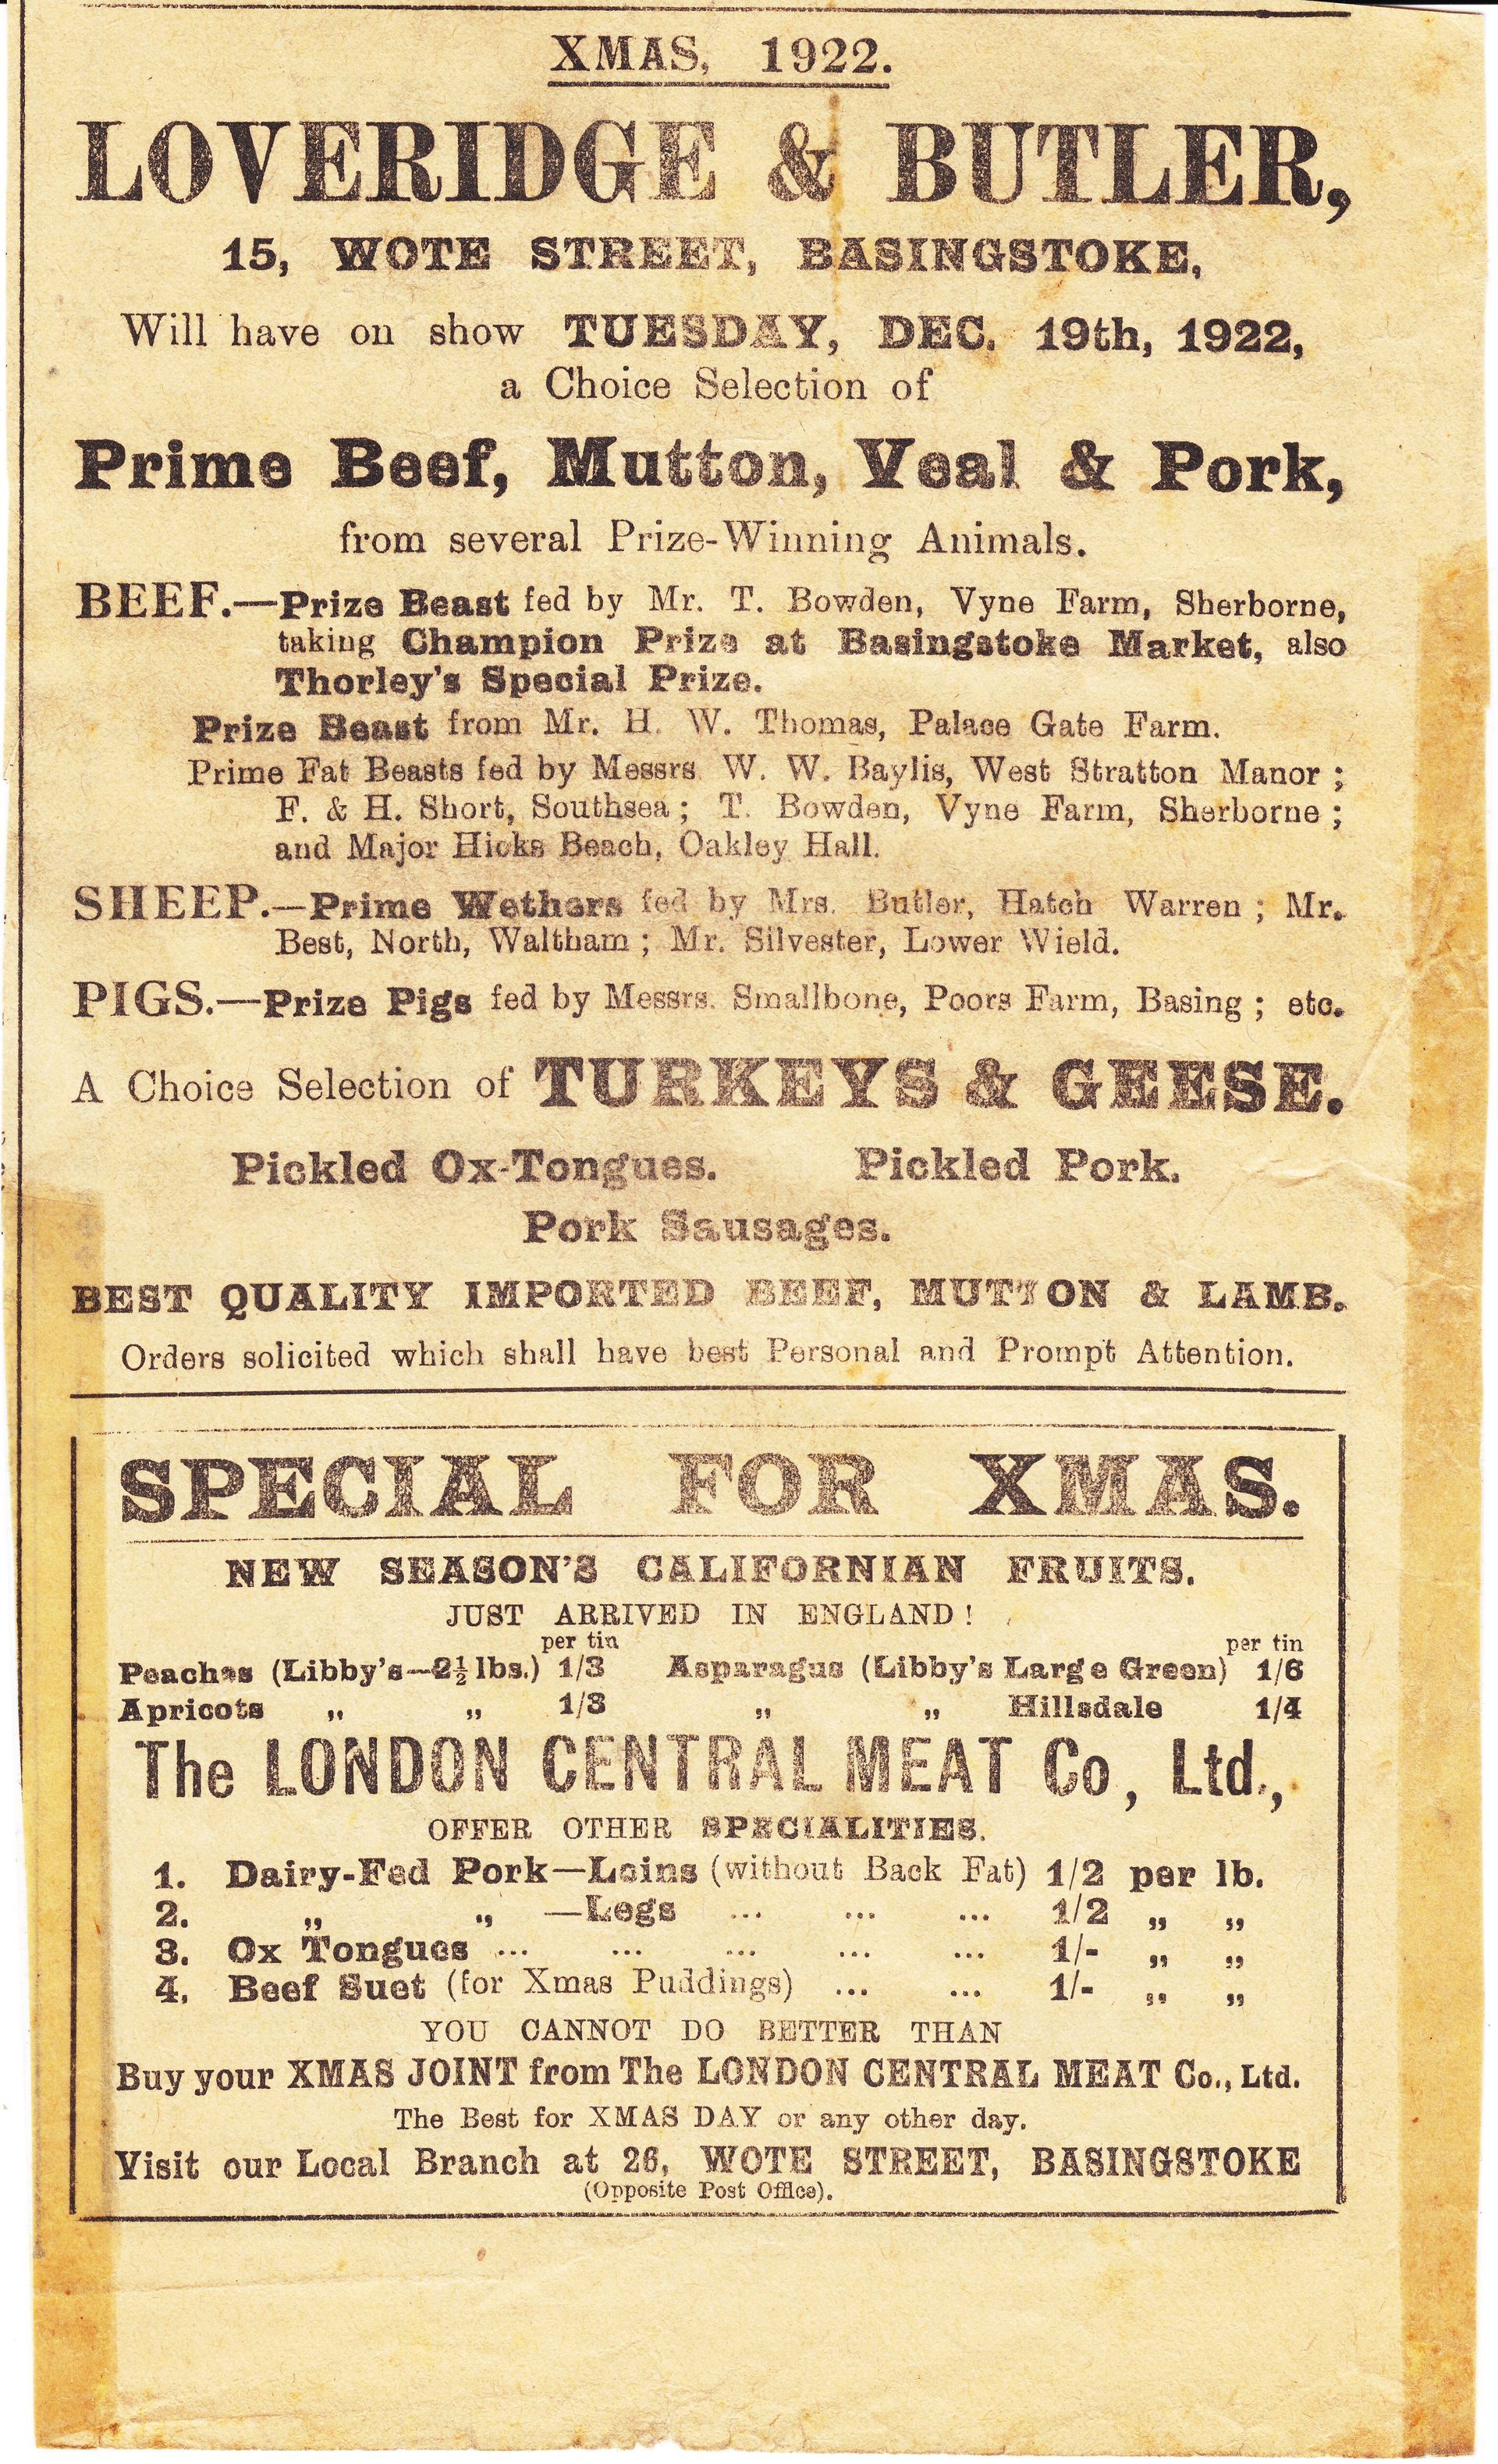 XMAS, 1922.
LOVERIDGE & BUTLER,
15, WOTE STREET, BASINGSTOKE,
Will have on show TUESDAY, DEC. 19th, 1922,
a Choice Selection of
Prime Beef, Mutton, Veal & Pork,
from several Prize-Winning Animals.
BEEF.—Prize Beast fed by Mr. T. Bowden, Vyne Farm, Sherborne,
taking Champion Prize at Basingstoke Market, also
Thorley's Special Prize.
Prize Beast from Mr. H. W. Thomas, Palace Gate Farm.
Prime Fat Beasts fed by Messrs. W. W. Baylis, West Stratton Manor ;
F. & H. Short, Southsea ; T. Bowden, Vyne Farm, Sherborne ;
and Major Hicks Beach, Oakley Hall.
SHEEP.—Prime Wethers fed by Mrs. Butler, Hatch Warren ; Mr.
Best, North, Waltham ; Mr. Silvester, Lower Wield.
PIGS.—Prize Pigs fed by Messrs. Smallbone, Poors Farm, Basing ; etc.
A Choice Selection of TURKEYS & GEESE.
Pickled Ox-Tongues. Pickled Pork.
Pork Sausages.
BEST QUALITY IMPORTED BEEF, MUTTON & LAMB.
Orders solicited which shall have best Personal and Prompt Attention.
SPECIAL FOR XMAS.
NEW SEASON'S CALIFORNIAN FRUITS.
JUST ARRIVED IN ENGLAND !
per tin per tin
Peaches (Libby's—2½ lbs.) 1/3 Asparagus (Libby's Large Green) 1/6
Apricots „ „ 1/3 „ „ Hillsdale 1/4
The LONDON CENTRAL MEAT Co, Ltd.,
OFFER OTHER SPECIALITIES.
1. Dairy-Fed Pork—Loins (without Back Fat) 1/2 per lb.
2. „ „ —Legs ... ... ... 1/2 „ „
3. Ox Tongues ... ... ... ... ... 1/- „ „
4. Beef Suet (for Xmas Puddings) ... ... 1/- „ „
YOU CANNOT DO BETTER THAN
Buy your XMAS JOINT from The LONDON CENTRAL MEAT Co., Ltd.
The Best for XMAS DAY or any other day.
Visit our Local Branch at 26, WOTE STREET, BASINGSTOKE
(Opposite Post Office).